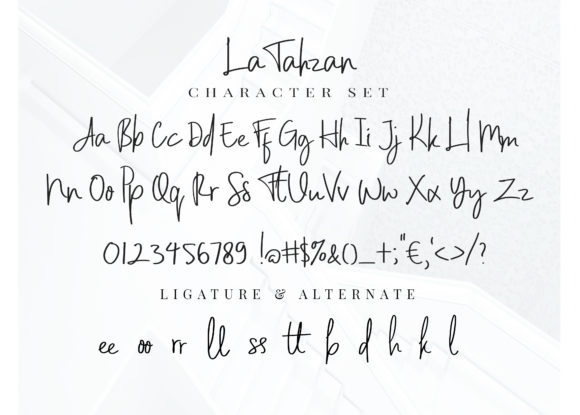 La Tahzan
CHARACTER SET
Aa Bb Cc Dd Ee Ff Gg Hh Ii Jj Kk Ll Mm
Nn Oo Pp Qq Rr Ss Tt Uu Vv Ww Xx Yy Zz
0123456789 !@#$%&()_+;"€,'<>/?
LIGATURE & ALTERNATE
ee oo rr ll ss tt b d h k l